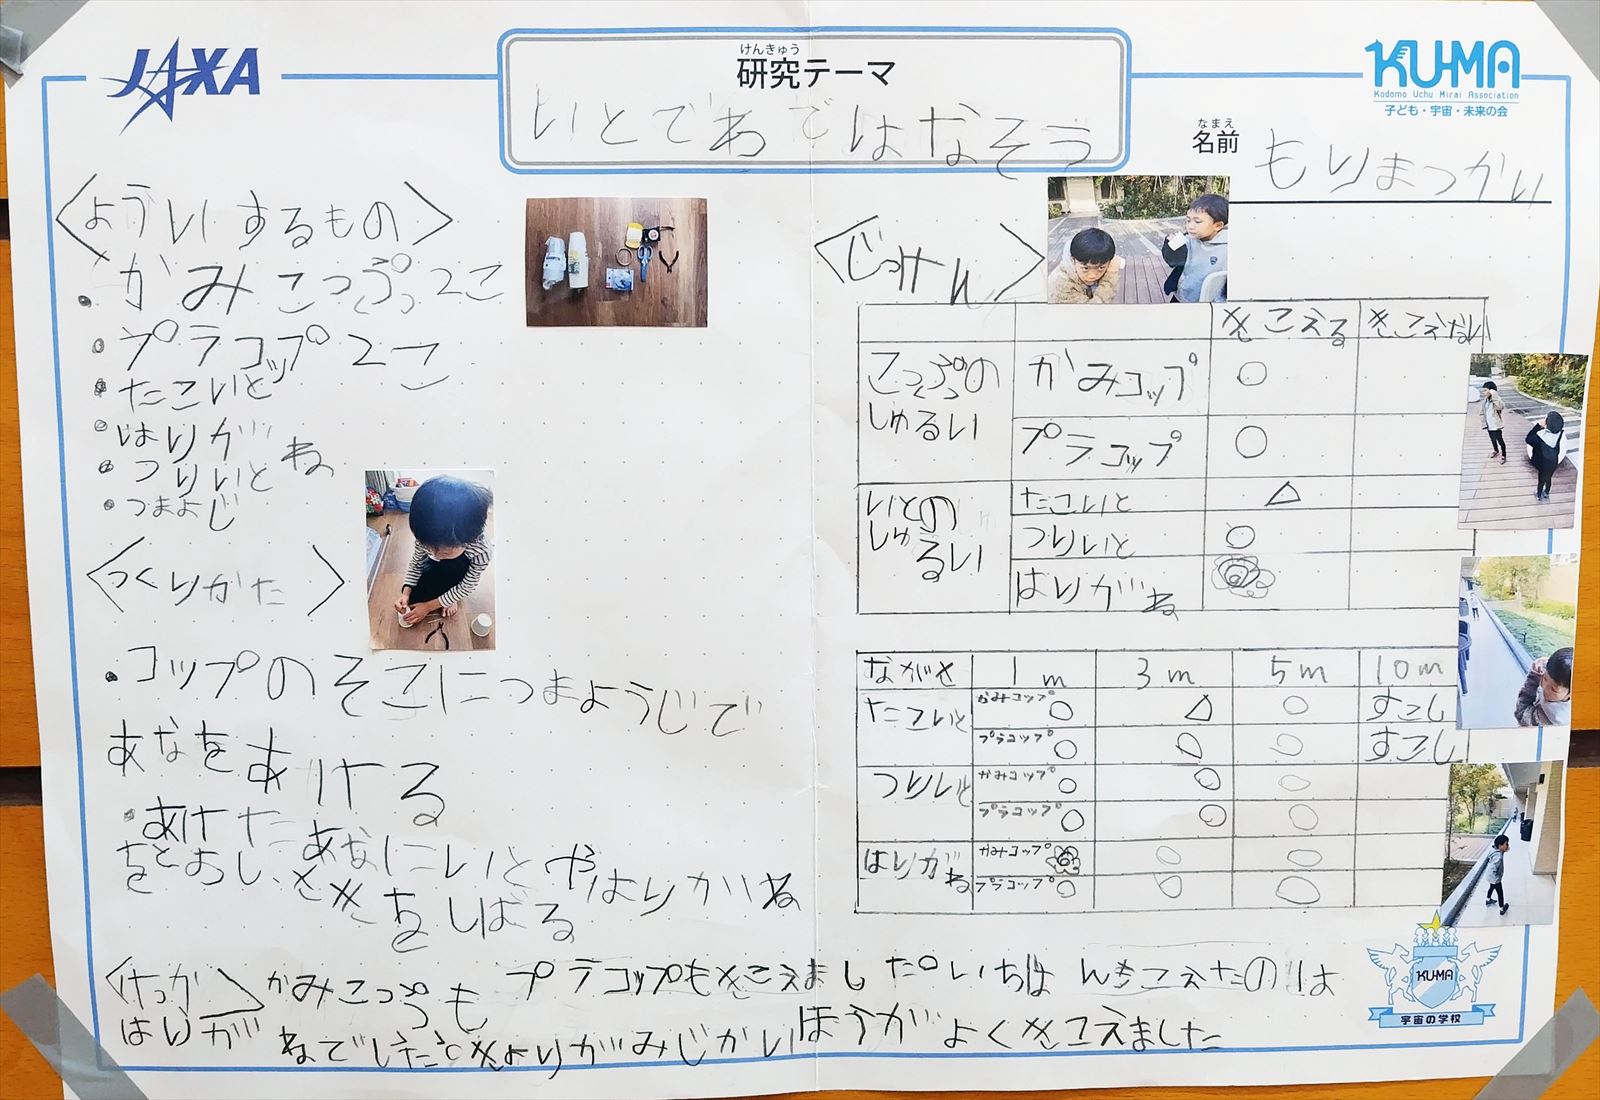 JAXA
けんきゅう
研究テーマ
いとでわではなそう
KUMA
Kodomo Uchu Mirai Association
子ども・宇宙・未来の会
なまえ
名前
もりまつかい
<よういするもの>
・かみこっぷ2こ
・プラコップ2こ
・たこいと
・はりがね
・つりいと
・つまよじ
<つくりかた>
・コップのそこにつまようじで
あなをあける
・あけたあなにいとやはりがね
をとおし、さきをしばる
<じっけん>
きこえる きこえない
こっぷの かみコップ ○
しゅるい プラコップ ○
いとの たこいと △
しゅるい つりいと ○
はりがね
ながさ 1m 3m 5m 10m
たこいと かみコップ ○ △ ○ すこし
プラコップ ○ ○ ○ すこし
つりいと かみコップ ○ ○ ○
プラコップ ○ ○ ○
はりがね かみコップ ○ ○
プラコップ ○ ○ ○
<けっか> かみこっぷも プラコップもきこえました。いちばんきこえたのは
はりがねでした。きょりがみじかいほうがよくきこえました
KUMA
宇宙の学校